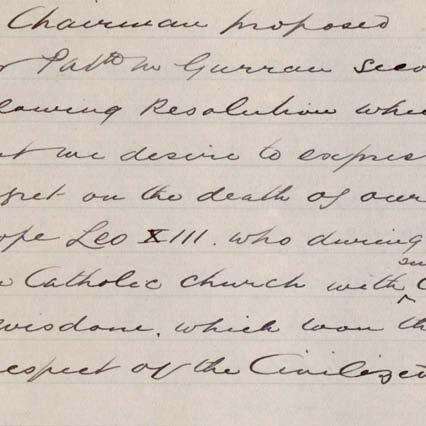 Chairman proposed
Patk McGurran seco
lowing Resolution whi
t we desire to expres
gret on the death of our
ope Leo XIII. who during
Catholic church with
wisdom, which won th
espect of the Civilized